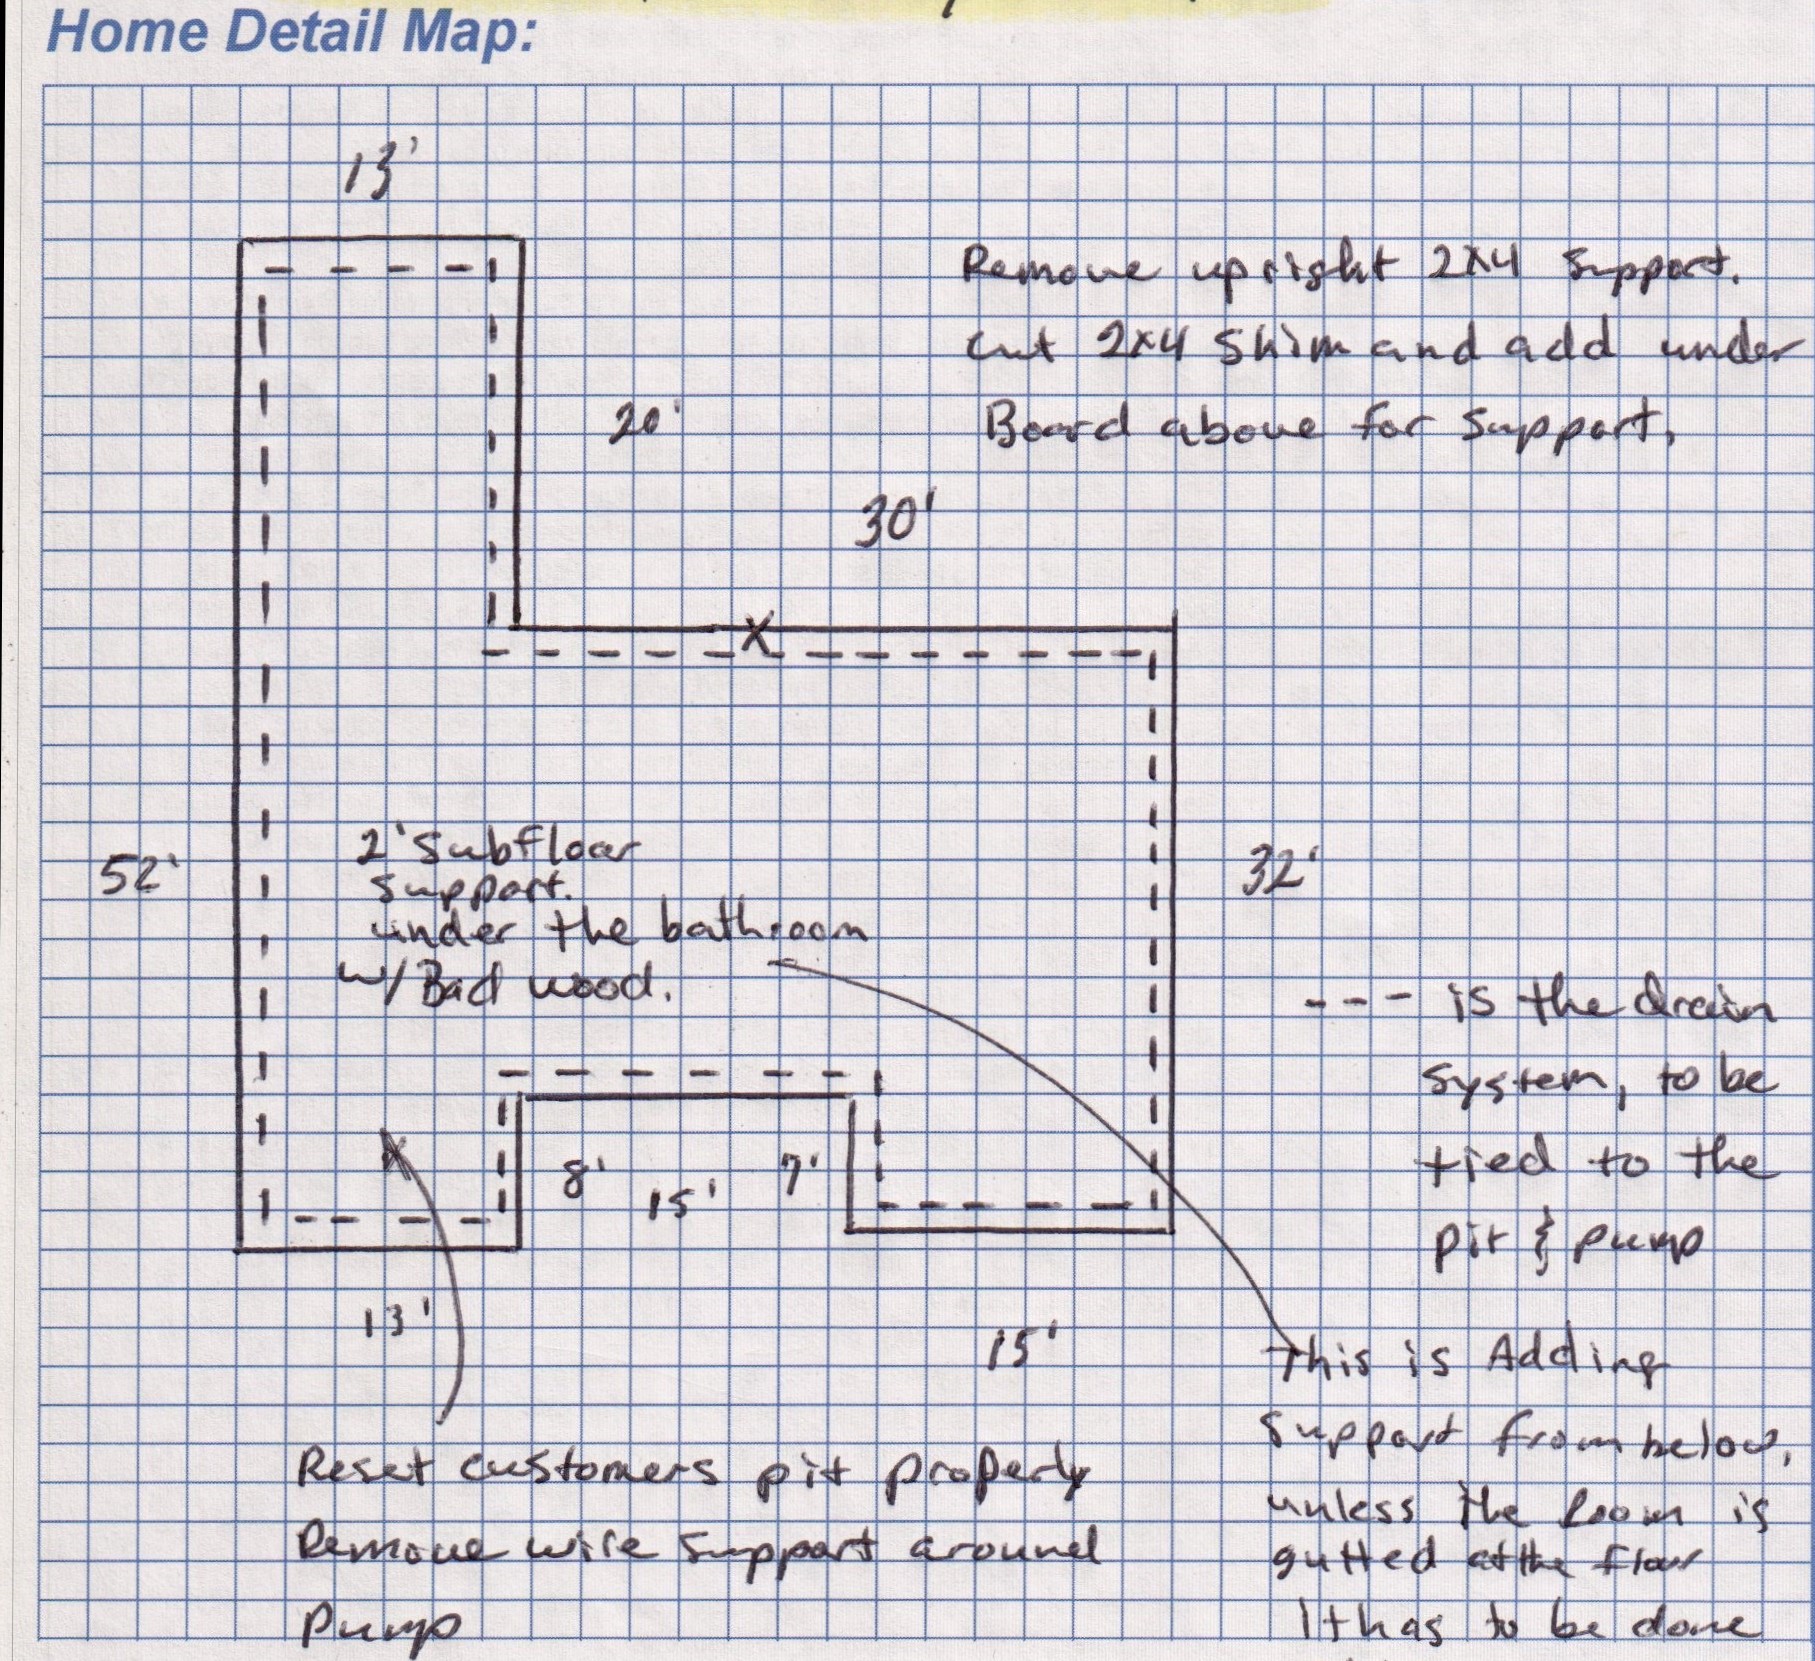 Home Detail Map:
13'
Remove upright 2x4 support.
cut 2x4 shim and add under
Board above for support.
20'
30'
X
52'
2' subfloor
support.
under the bathroom
w/ Bad wood.
32'
--- is the drain
system, to be
tied to the
pit & pump
X
8'
15'
7'
13'
15'
This is Adding
support from below,
unless the Room is
gutted at the floor
It has to be done
Reset customers pit properly
Remove wire support around
Pump